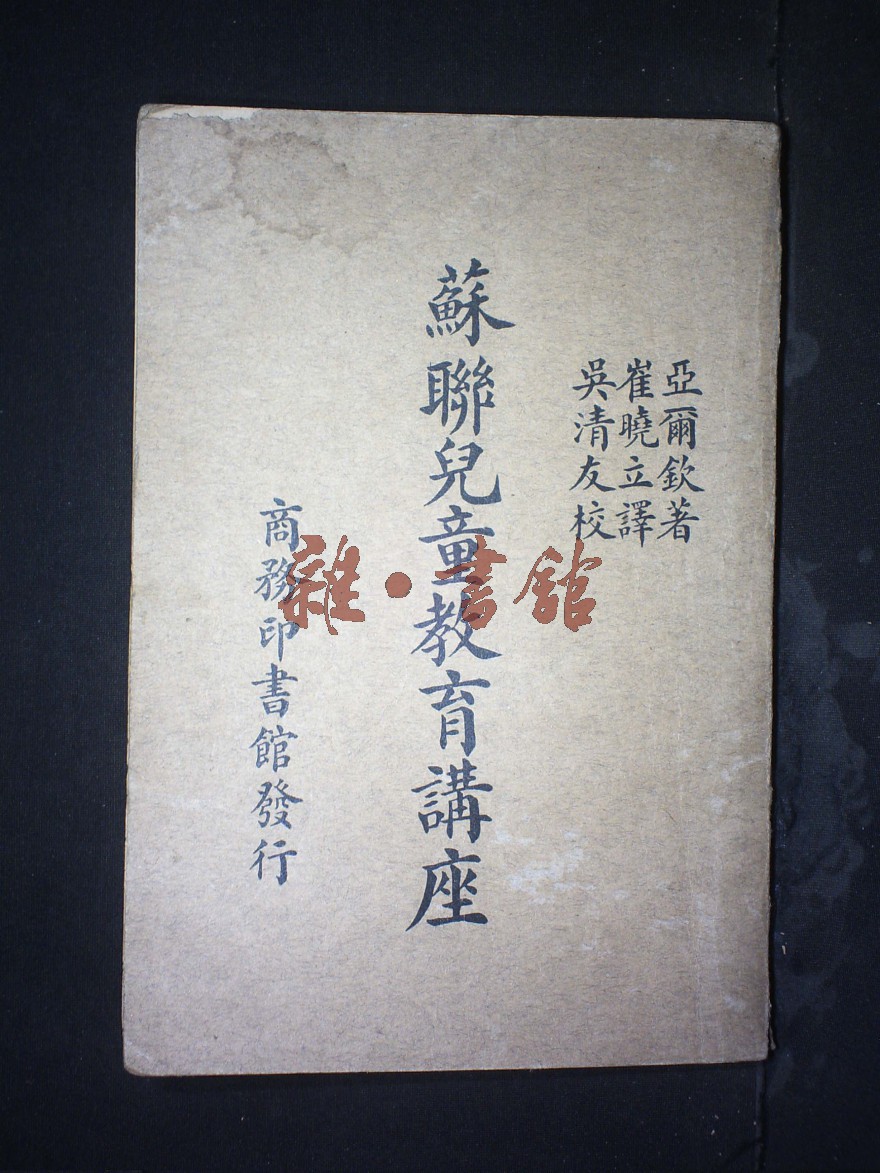 亞爾欽著
崔曉立譯
吳清友校
蘇聯兒童教育講座
商務印書館發行
雜·書館